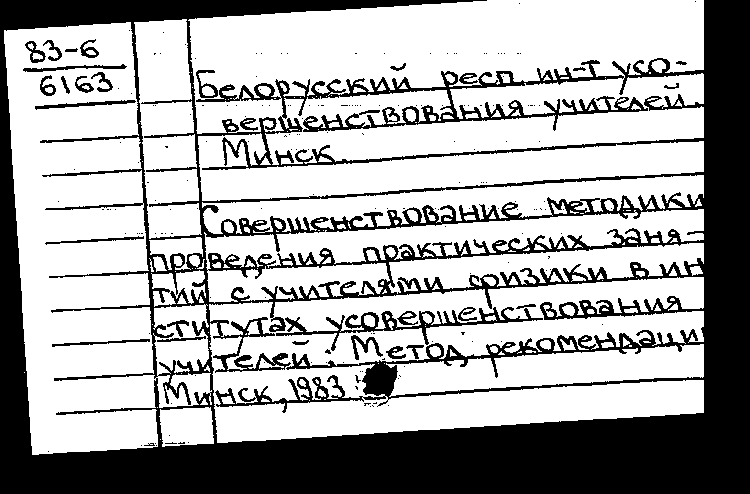 83-6
6163
Белорусский респ. ин-т усо-
вершенствования учителей.
Минск.
Совершенствование методики
проведения практических заня-
тий с учителями физики в ин
ститутах усовершенствования
учителей: Метод. рекомендаци
Минск, 1983